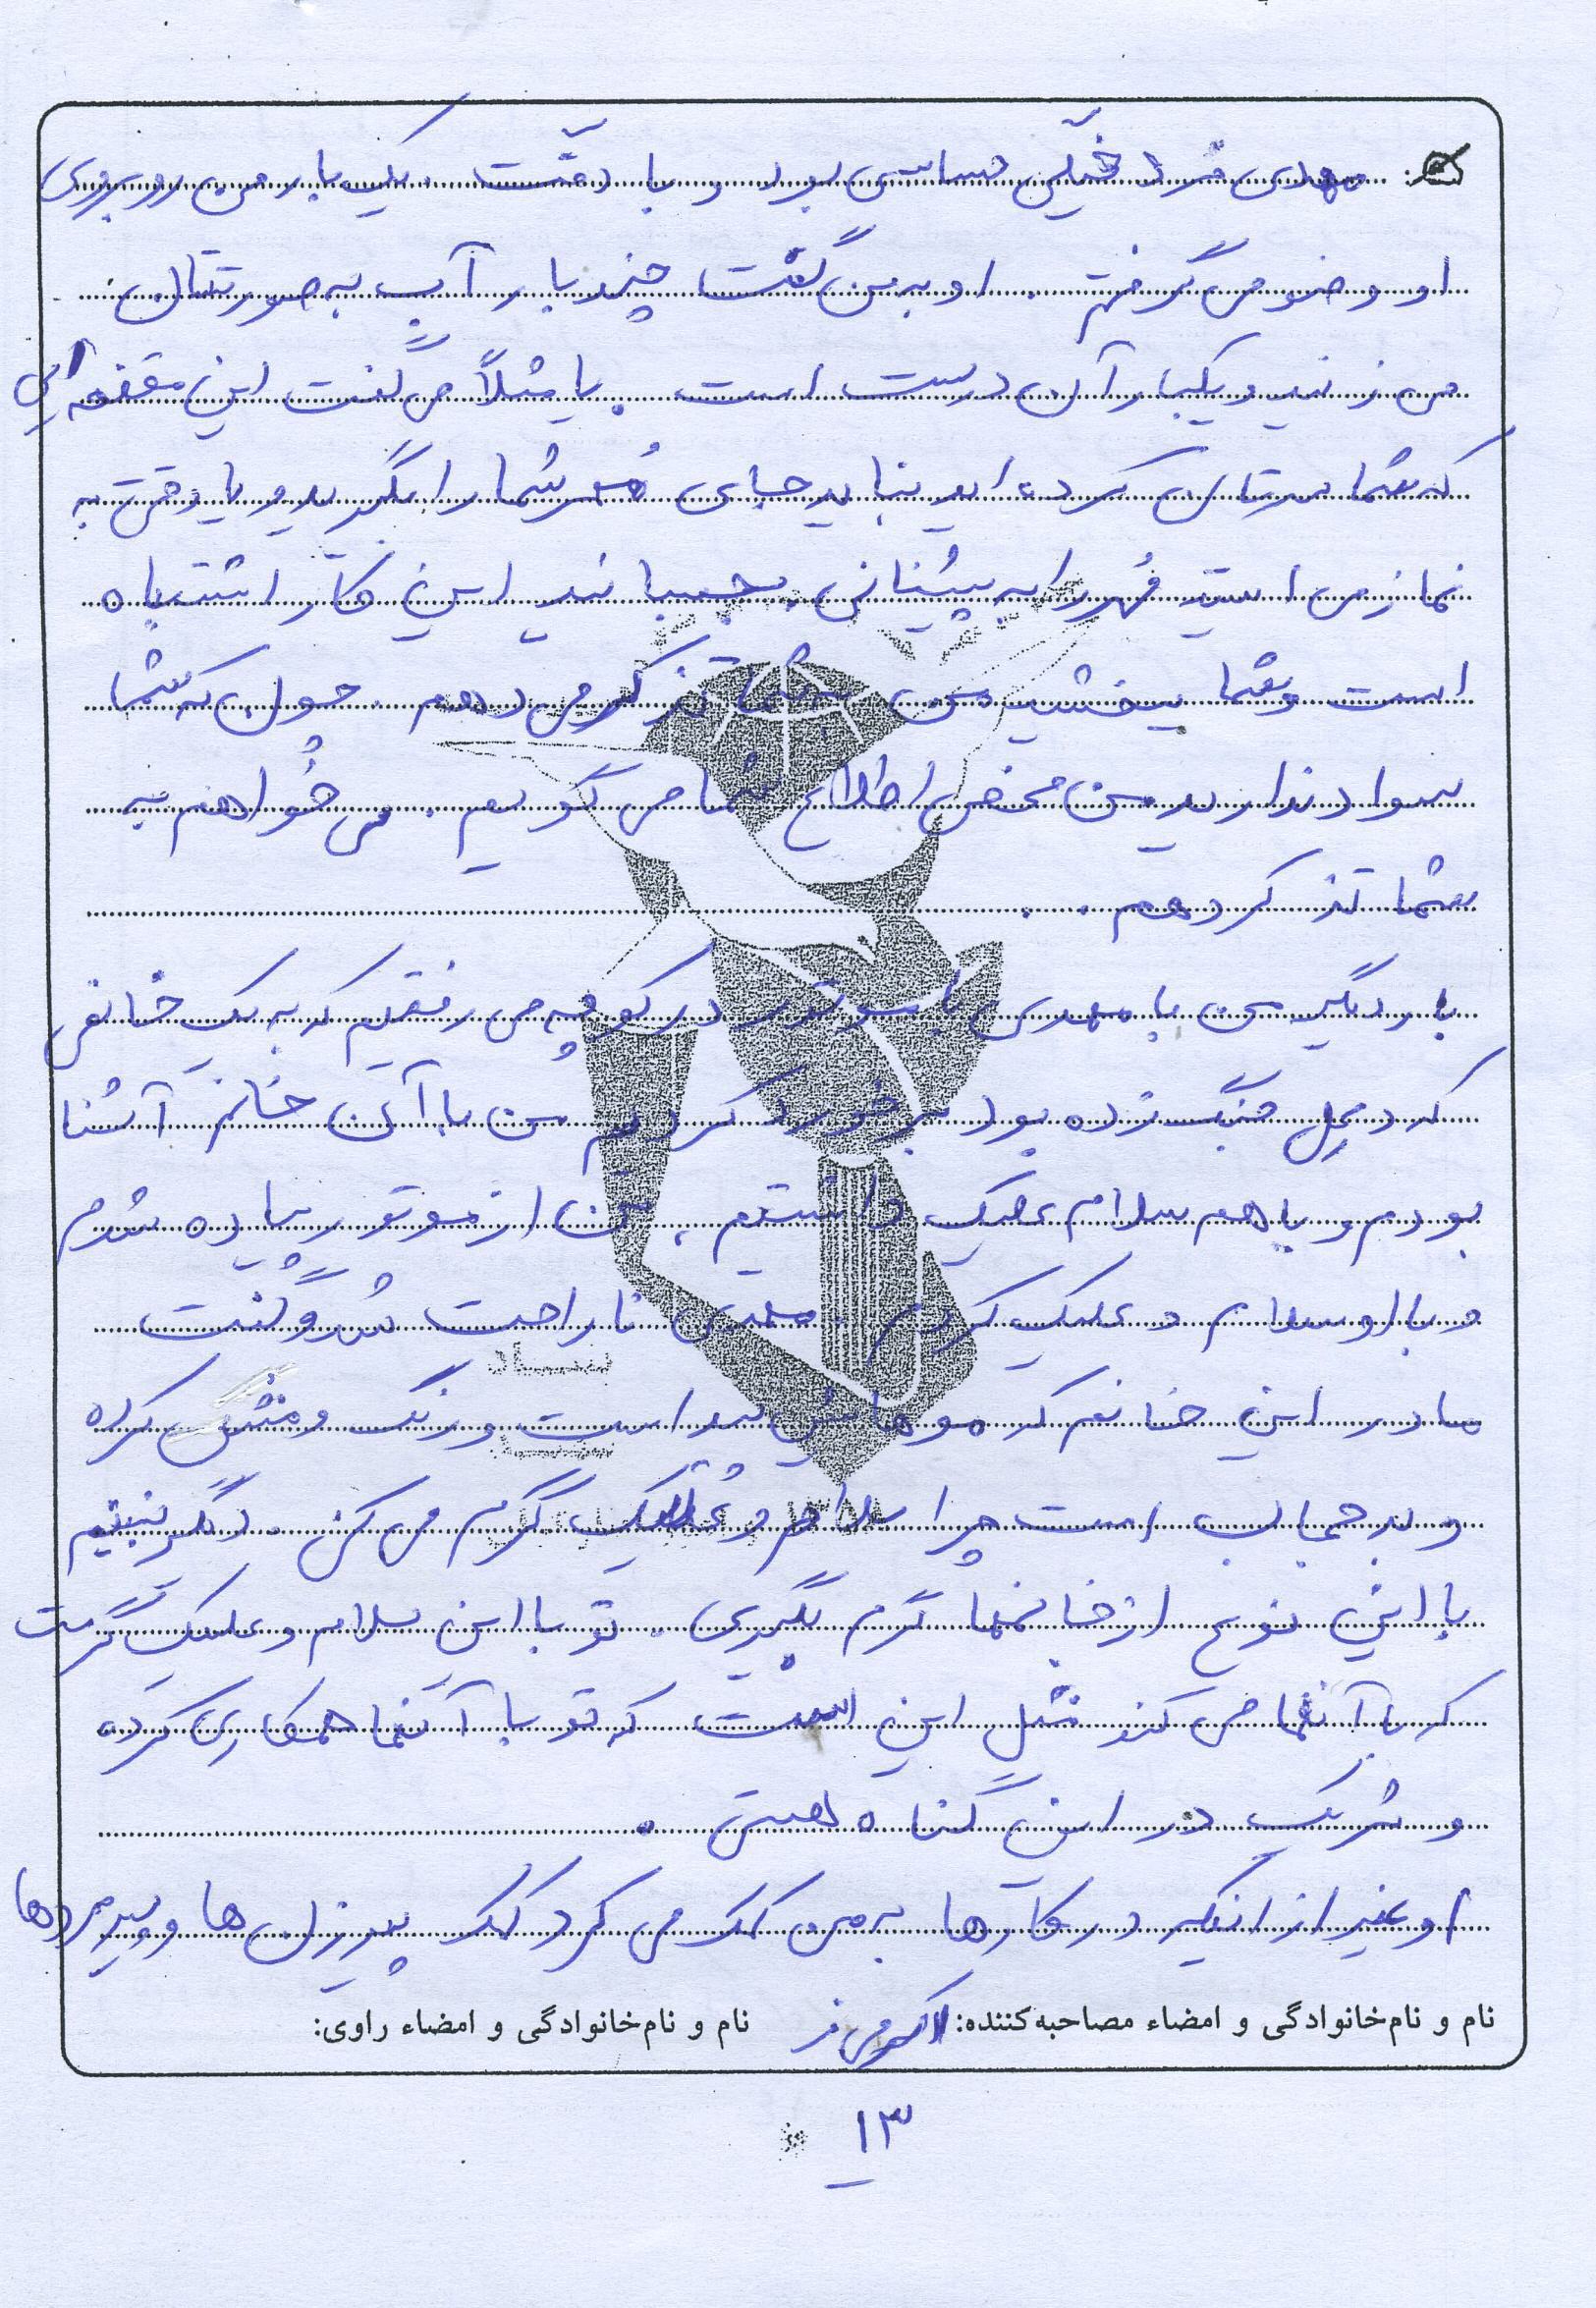 مهدی فرد خیلی حساسی بود و با دقّت . یک بار من روبروی
او وضو می گرفتم . او به من گفت چند بار آب به صورتتان
می زنید و یکبار آن درست است . یا مثلاً می گفت این مقنعه ایی
که شما سرتان کرده اید نباید جای مُهر شما را بگیرد و یا وقتی به
نماز می استید مُهر را به پیشانی بچسبانید این کار اشتباه
است و شما ببخشید من به شما تذکر می دهم . چون که شما
سواد ندارید من محض اطلاع شما می گویم . می خواهم به
شما تذکر دهم .
بار دیگر من با مهدی با موتور در کوچه می رفتیم که به یک خانمی
که در محل جنگ زده بود برخورد کردیم من با آن خانم آشنا
بودم و با هم سلام علیک داشتیم ، من از موتور پیاده شدم
و با او سلام و علیک کردم . مهدی ناراحت شد و گفت
مادر این خانم که موهایش پیدا است و رنگ و مش کرده
و بد حجاب است چرا سلام و علیک گرم می کنی . دیگر نبینم
با این نوع از خانمها گرم بگیری . تو با این سلام و علیک گرمت
که با آنها می کند مثل این است که تو با آنها همکاری کرده
و شریک در این گناه هستی .
او غیر از اینکه در کارها به من کمک می کرد کمک پیرزن ها و پیرمردها
نام و نام‌خانوادگی و امضاء مصاحبه‌کننده: نام و نام‌خانوادگی و امضاء راوی:
۱۳